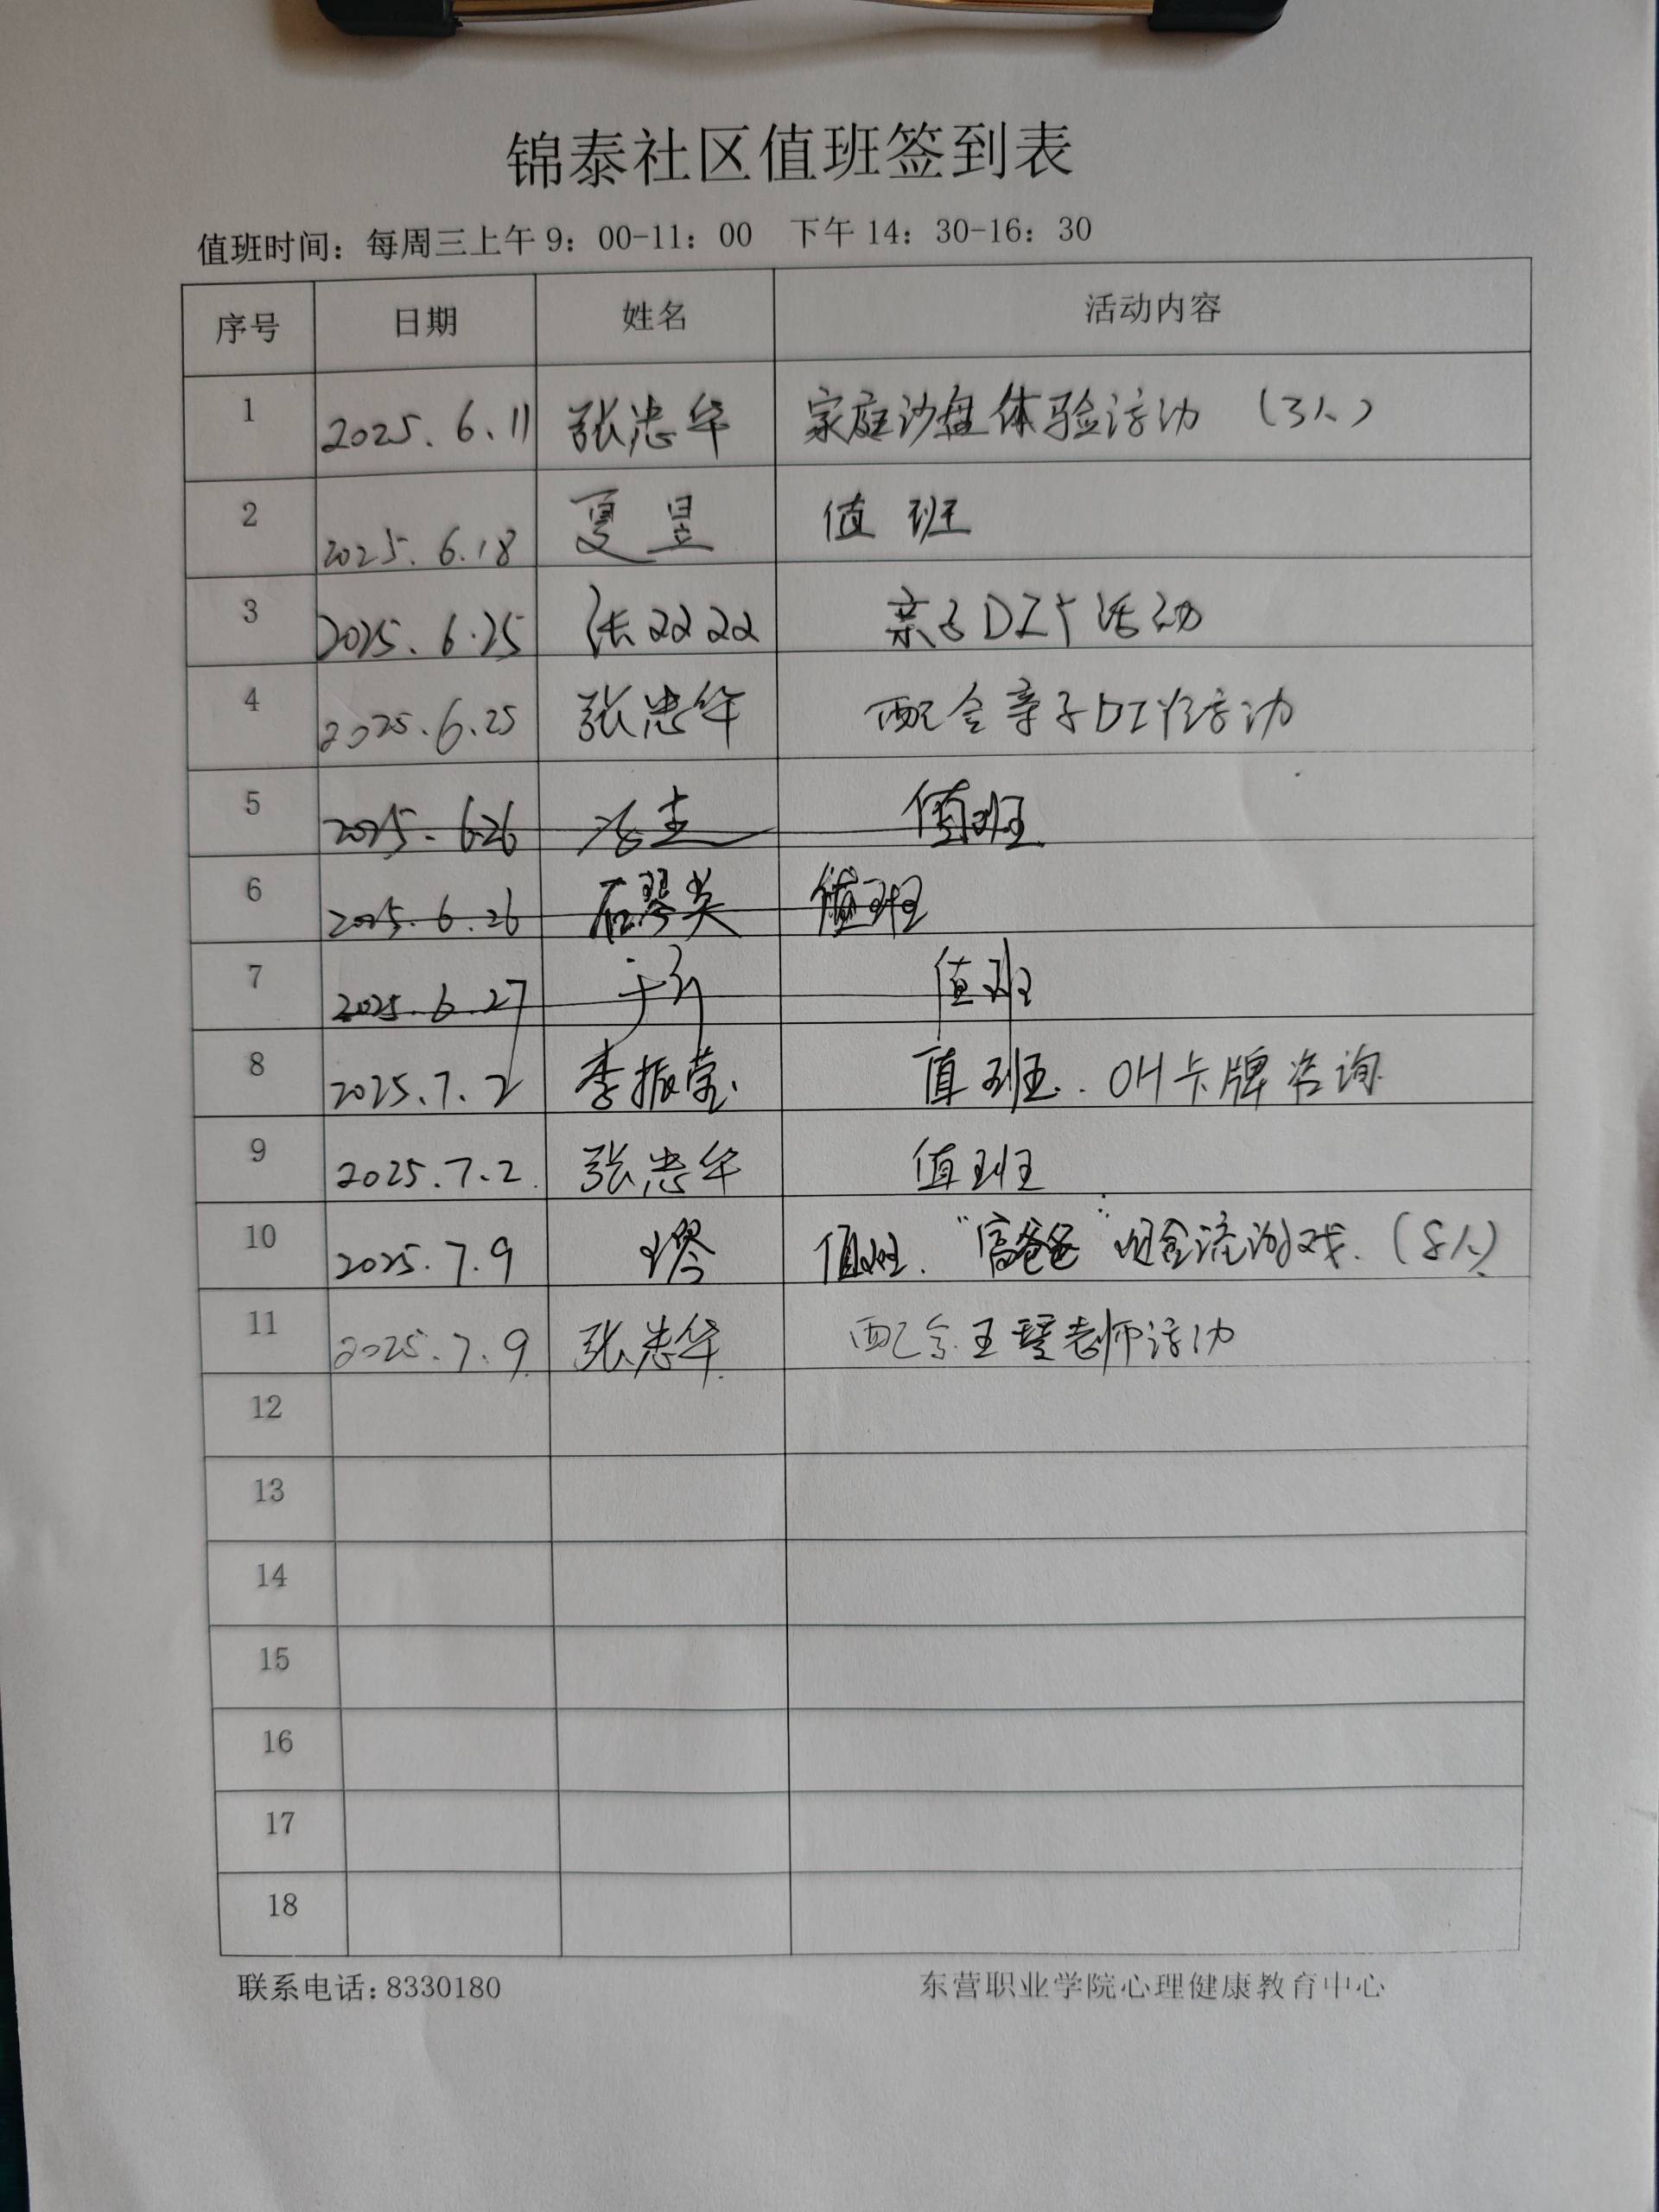 锦泰社区值班签到表
值班时间：每周三上午9：00-11：00 下午14：30-16：30
序号 日期 姓名 活动内容
1 2025.6.11 张忠华 家庭沙盘体验活动（3人）
2 2025.6.18 夏昱 值班
3 2025.6.25 张 亲子DIY活动
4 2025.6.25 张忠华 配合亲子DIY活动
5 2025.6.26 值班
6 2025.6.26 石琴类 值班
7 2025.6.27 值班
8 2025.7.2 李振莹 值班. OH卡牌咨询
9 2025.7.2. 张忠华 值班
10 2025.7.9 值班. "富爸爸"现金流游戏.（8人）
11 2025.7.9. 张忠华 配合王琴老师活动
12
13
14
15
16
17
18
联系电话：8330180 东营职业学院心理健康教育中心